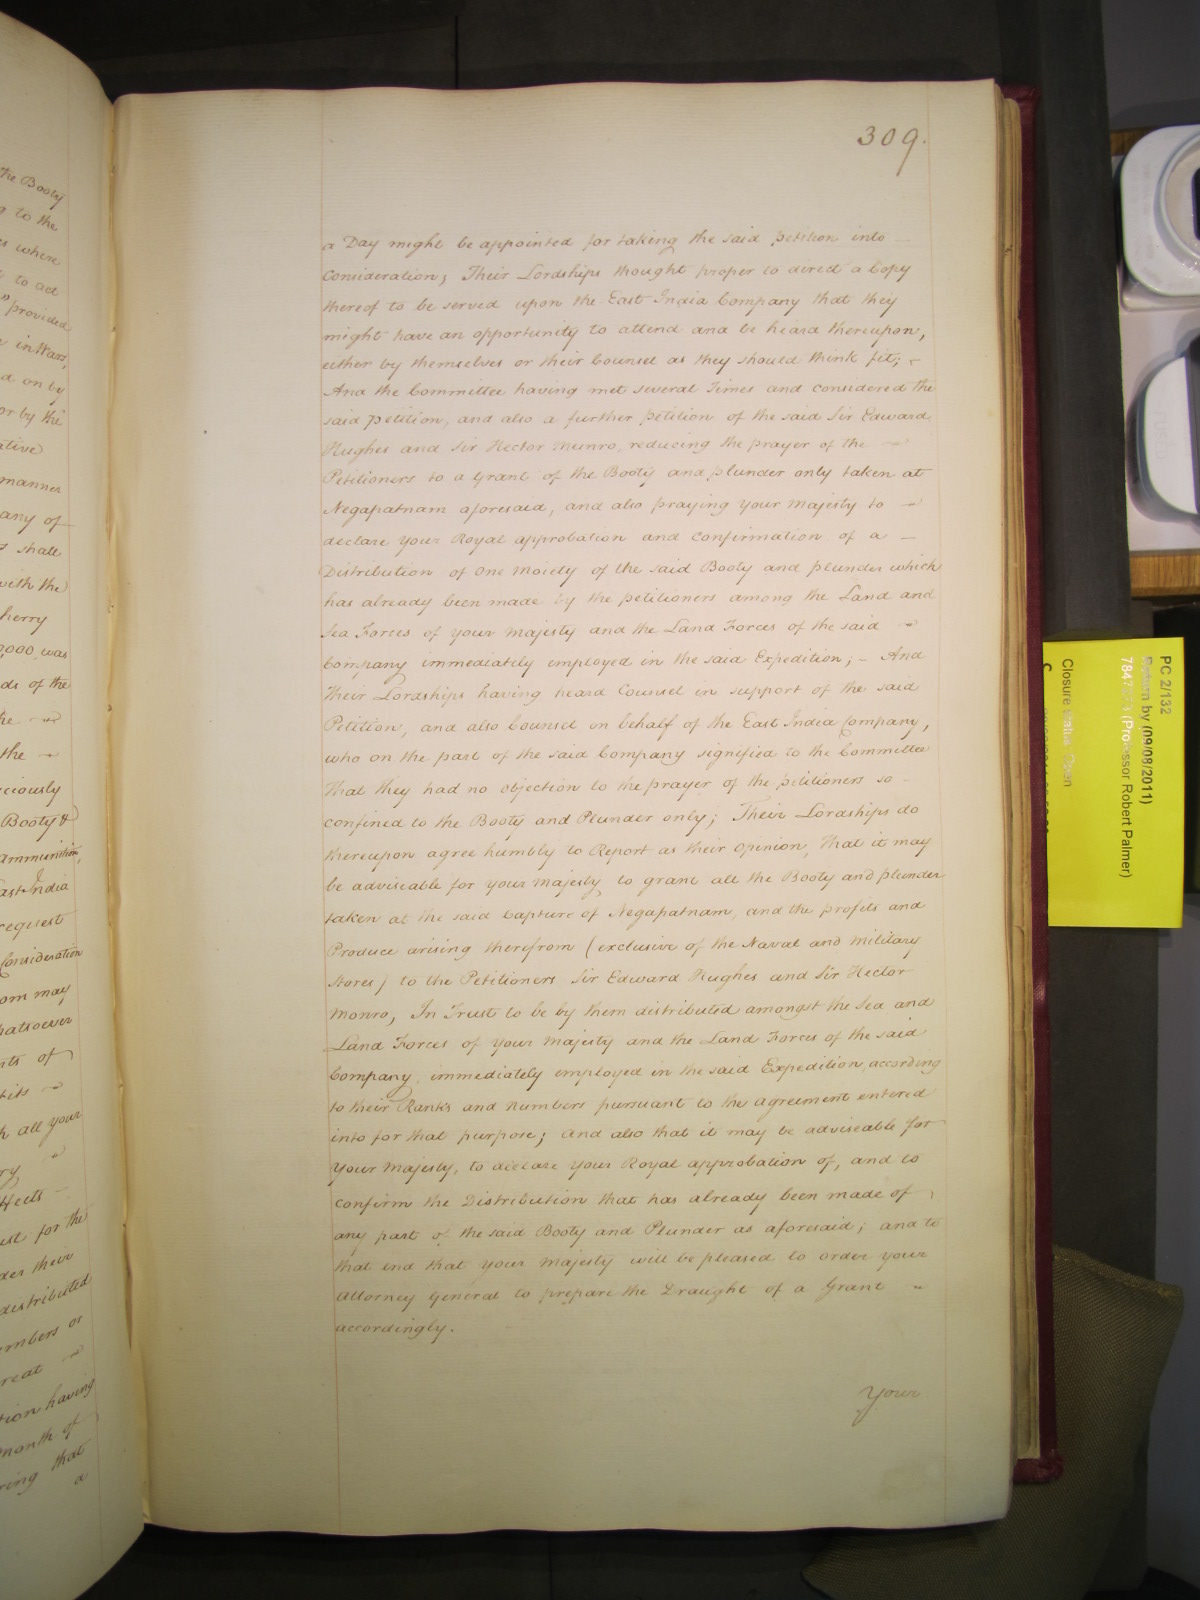 309.
a Day might be appointed for taking the said petition into
Consideration; Their Lordships thought proper to direct a Copy
thereof to be served upon the East India Company that they
might have an opportunity to attend and be heard thereupon,
either by themselves or their Counsel as they should think fit; -
And the Committee having met several Times and considered the
said petition, and also a further petition of the said Sir Edward
Hughes and Sir Hector Munro, reducing the prayer of the
Petitioners to a Grant of the Booty and plunder only taken at
Negapatnam aforesaid, and also praying Your Majesty to
declare Your Royal approbation and Confirmation of a -
Distribution of One Moiety of the said Booty and plunder which
has already been made by the petitioners among the Land and
Sea Forces of Your Majesty and the Land Forces of the said
Company immediately employed in the said Expedition; - And
Their Lordships having heard Counsel in support of the said
Petition, and also Counsel on behalf of the East India Company,
who on the part of the said Company signified to the Committee
that they had no objection to the prayer of the petitioners so -
confined to the Booty and Plunder only; Their Lordships do
thereupon agree humbly to Report as their Opinion, That it may
be adviseable for Your Majesty, to grant all the Booty and plunder
taken at the said Capture of Negapatnam, and the profits and
Produce arising therefrom (exclusive of the Naval and Military
Stores) to the Petitioners Sir Edward Hughes and Sir Hector
Monro, In Trust to be by them distributed amongst the Sea and
Land Forces of Your Majesty and the Land Forces of the said
Company, immediately employed in the said Expedition, according
to their Ranks and Numbers pursuant to the agreement entered
into for that purpose; and also that it may be adviseable for
Your Majesty, to declare Your Royal approbation of, and to
confirm the Distribution that has already been made of
any part of the said Booty and Plunder as aforesaid; and to
that end that Your Majesty will be pleased to order Your
Attorney General to prepare the Draught of a Grant
accordingly.
Your
the Booty
to the
where
to act
provided
in Wars,
on by
or by the
manner
any of
shall
with the
was
of the
the
Booty &
ammunition,
East India
request
Consideration
may
of
all your
for the
their
distributed
or
having
month of
that
a
PC 2/132
Return by (09/08/2011)
(Professor Robert Palmer)
Closure status Open